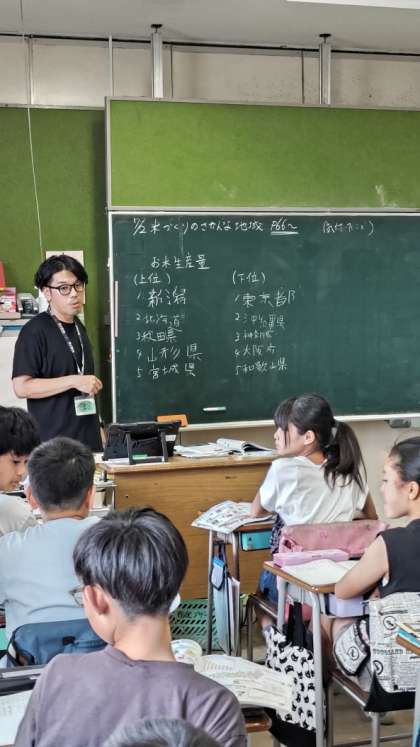 7/2 米づくりのさかんな地域 P66〜 (気付いたこと)
お米生産量
(上位) (下位)
1 新潟 1 東京都
2 北海道 2 沖縄県
3 秋田県 3 神奈川県
4 山形県 4 大阪府
5 宮城県 5 和歌山県